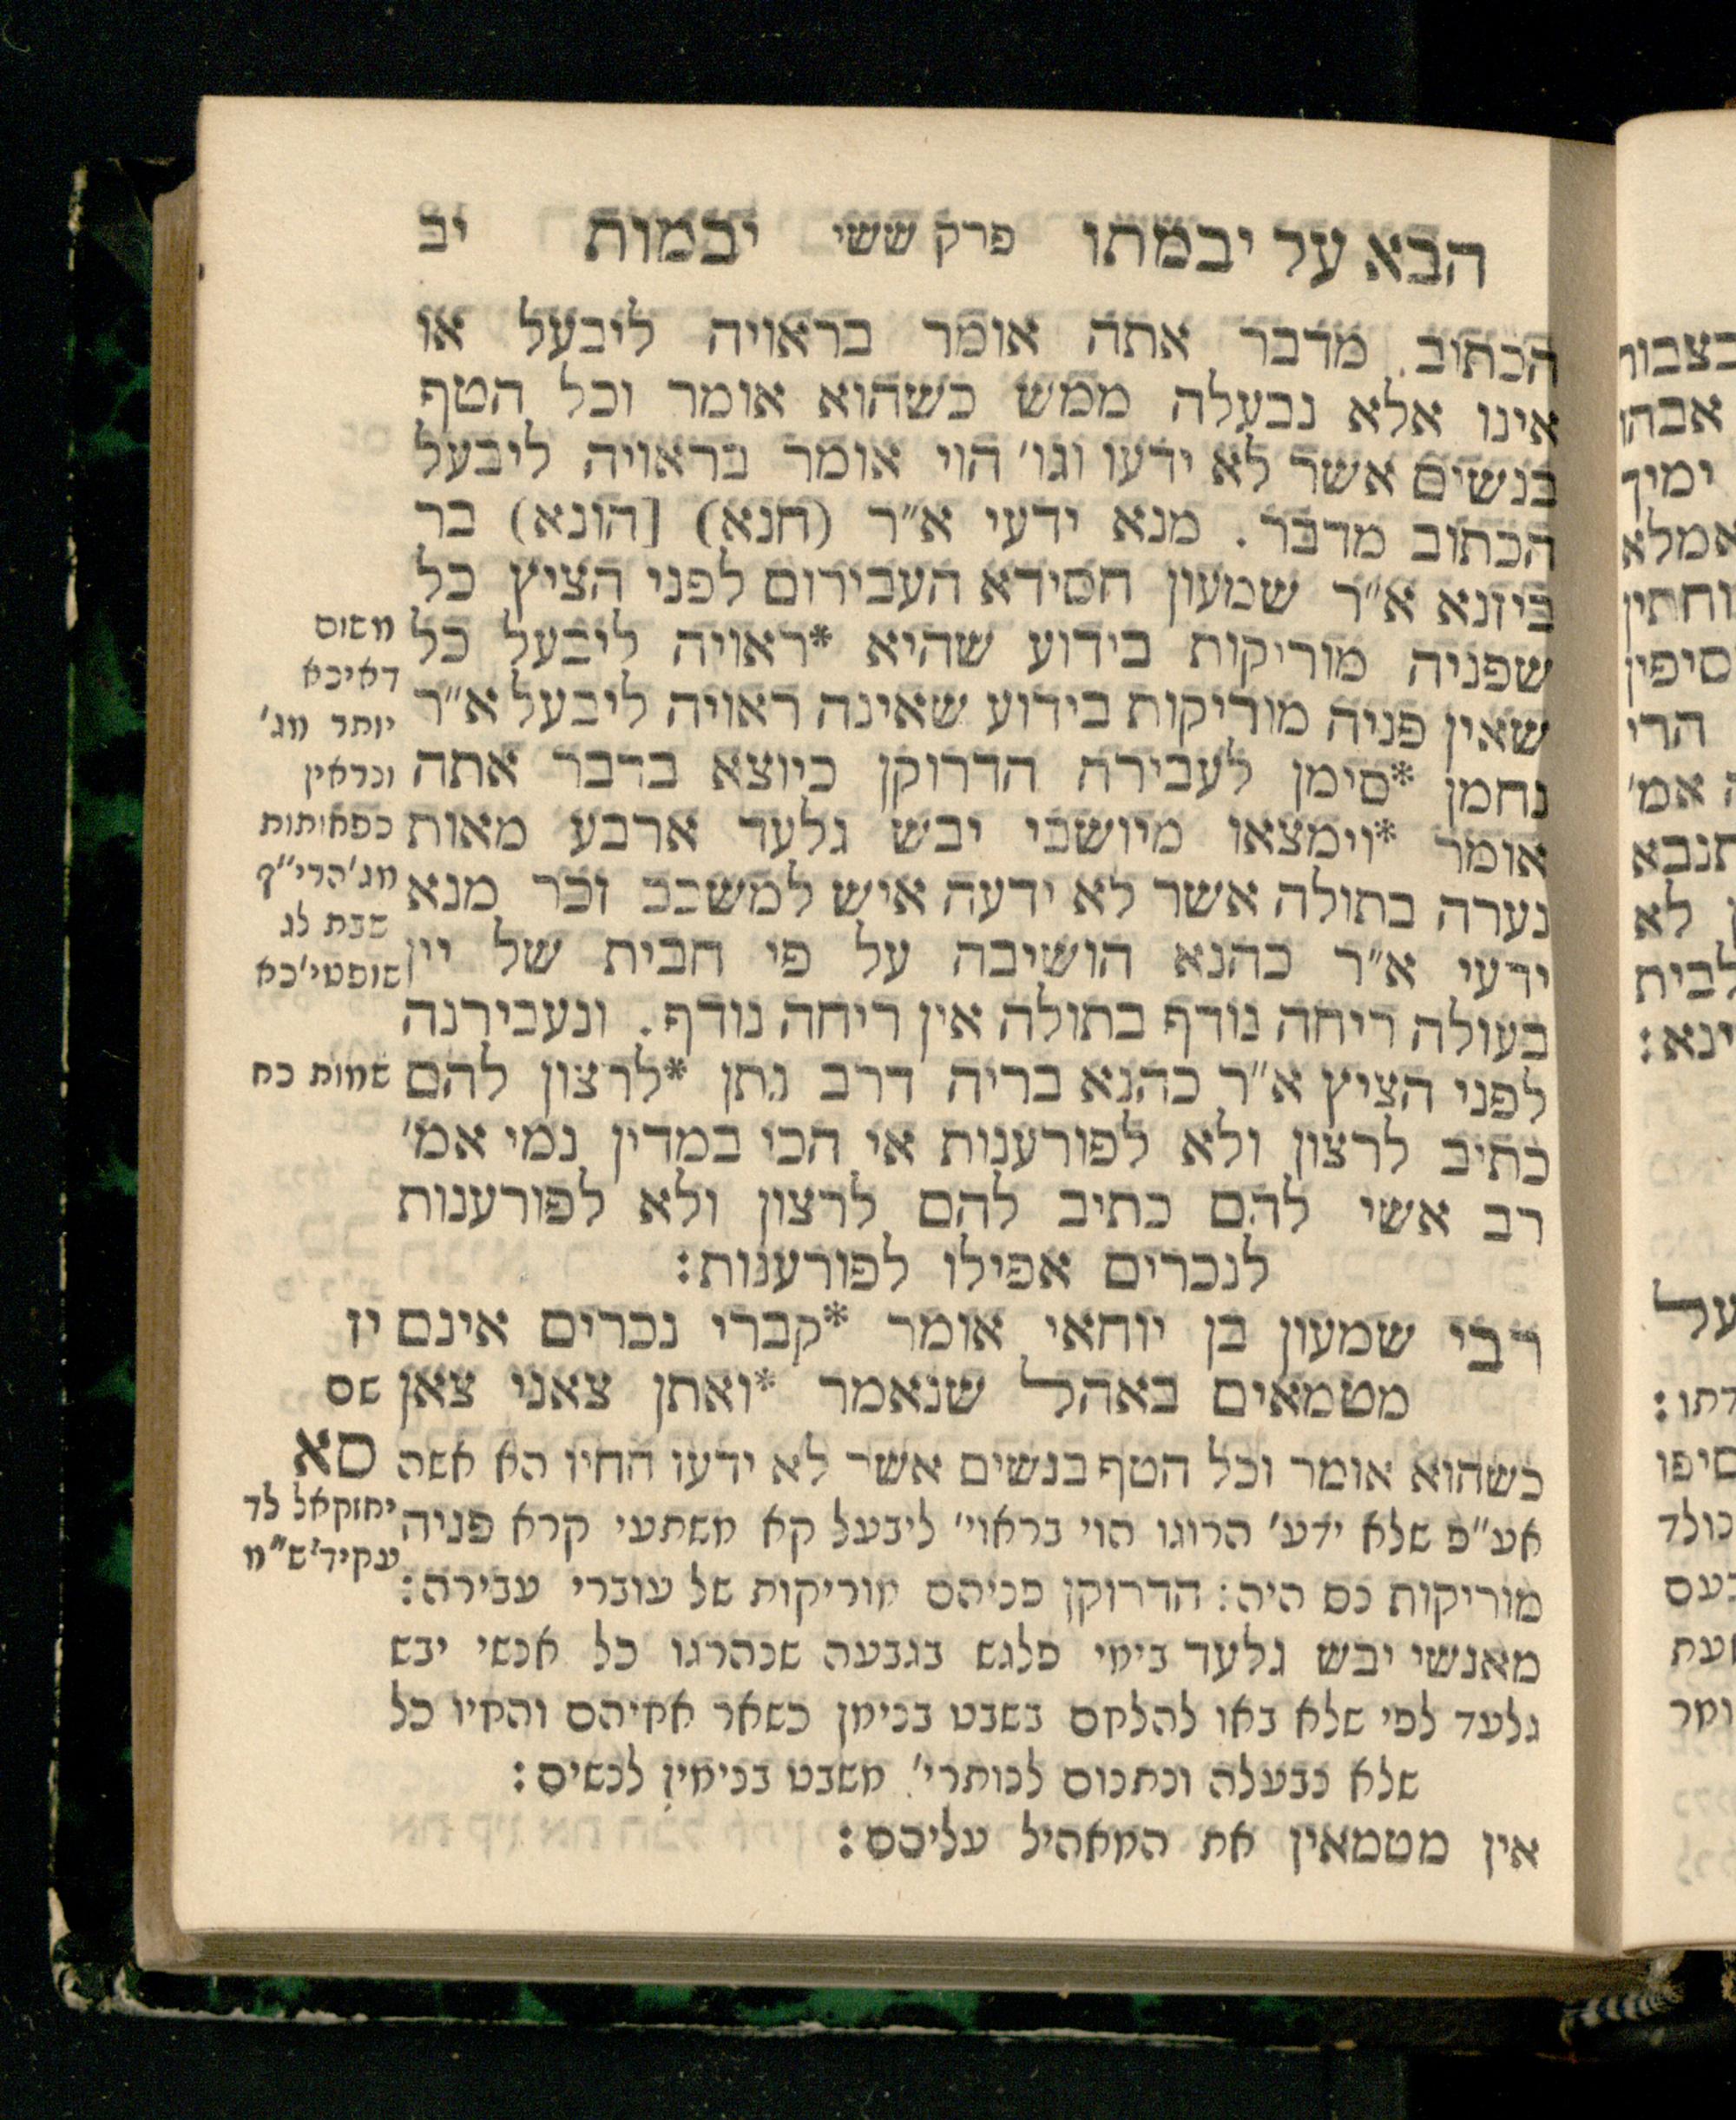 הבא על יבמתו פרק ששי יבמות יב
הכתוב מדבר אתה אומר בראויה ליבעל או
אינו אלא נבעלה ממש כשהוא אומר וכל הטף
בנשים אשר לא ידעו וגו' הוי אומר בראויה ליבעל
הכתוב מדבר. מנא ידעי א״ר (חנא) [הונא) בר
ביזנא א״ר שמעון חסידא העבירום לפני הציץ כל
שפניה מוריקות בידוע שהיא *ראויה ליבעל כל
שאין פניה מוריקות בידוע שאינה ראויה ליבעל א״ר
נחמן *סימן לעבירה הדרוקן כיוצא בדבר אתה
אומר *וימצאו מיושבי יבש גלעד ארבע מאות
נערה בתולה אשר לא ידעה איש למשכב זכר מנא
ידעי א״ר כהנא הושיבה על פי חבית של יין
בעולה ריחה נודף בתולה אין ריחה נודף. ונעבירנה
לפני הציץ א״ר כהנא בריה דרב נתן *לרצון להם
כתיב לרצון ולא לפורענות אי הכי במדין נמי אמ'
רב אשי להם כתיב להם לרצון ולא לפורענות
לנכרים אפילו לפורענות:
רבי שמעון בן יוחאי אומר *קברי נכרים אינם
מטמאים באהל שנאמר *ואתן צאני צאן
כשהוא אומר וכל הטף בנשים אשר לא ידעו החיו הא אשה
אע״פ שלא ידע' הרוגו הוי בראוי' ליבעל קא משתעי קרא פניה
מוריקות נס היה: הדרוקן פניהם מוריקות של עוברי עבירה:
מאנשי יבש גלעד בימי פלגש בגבעה שנהרגו כל אנשי יבש
גלעד לפי שלא באו להלחם בשבט בנימן כשאר אחיהם והחיו כל
שלא נבעלה ונתנום לנותרי' משבט בנימין לנשים:
אין מטמאין את המאהיל עליהם:
משום
דאיכא
יותר מג'
ונראין
כפאותות
מג'הרי״ף
שבת לג
שופטי'כא
שמות כח
יז
שם
סא
יחזקאל לד
בצבור
אבהו
ימיך
אמלא
וחתין
סיפין
הרי
אמ'
תנבא
לא
לבית
ינא:
על
דתו:
סיפו
כולד
בעם
ומר